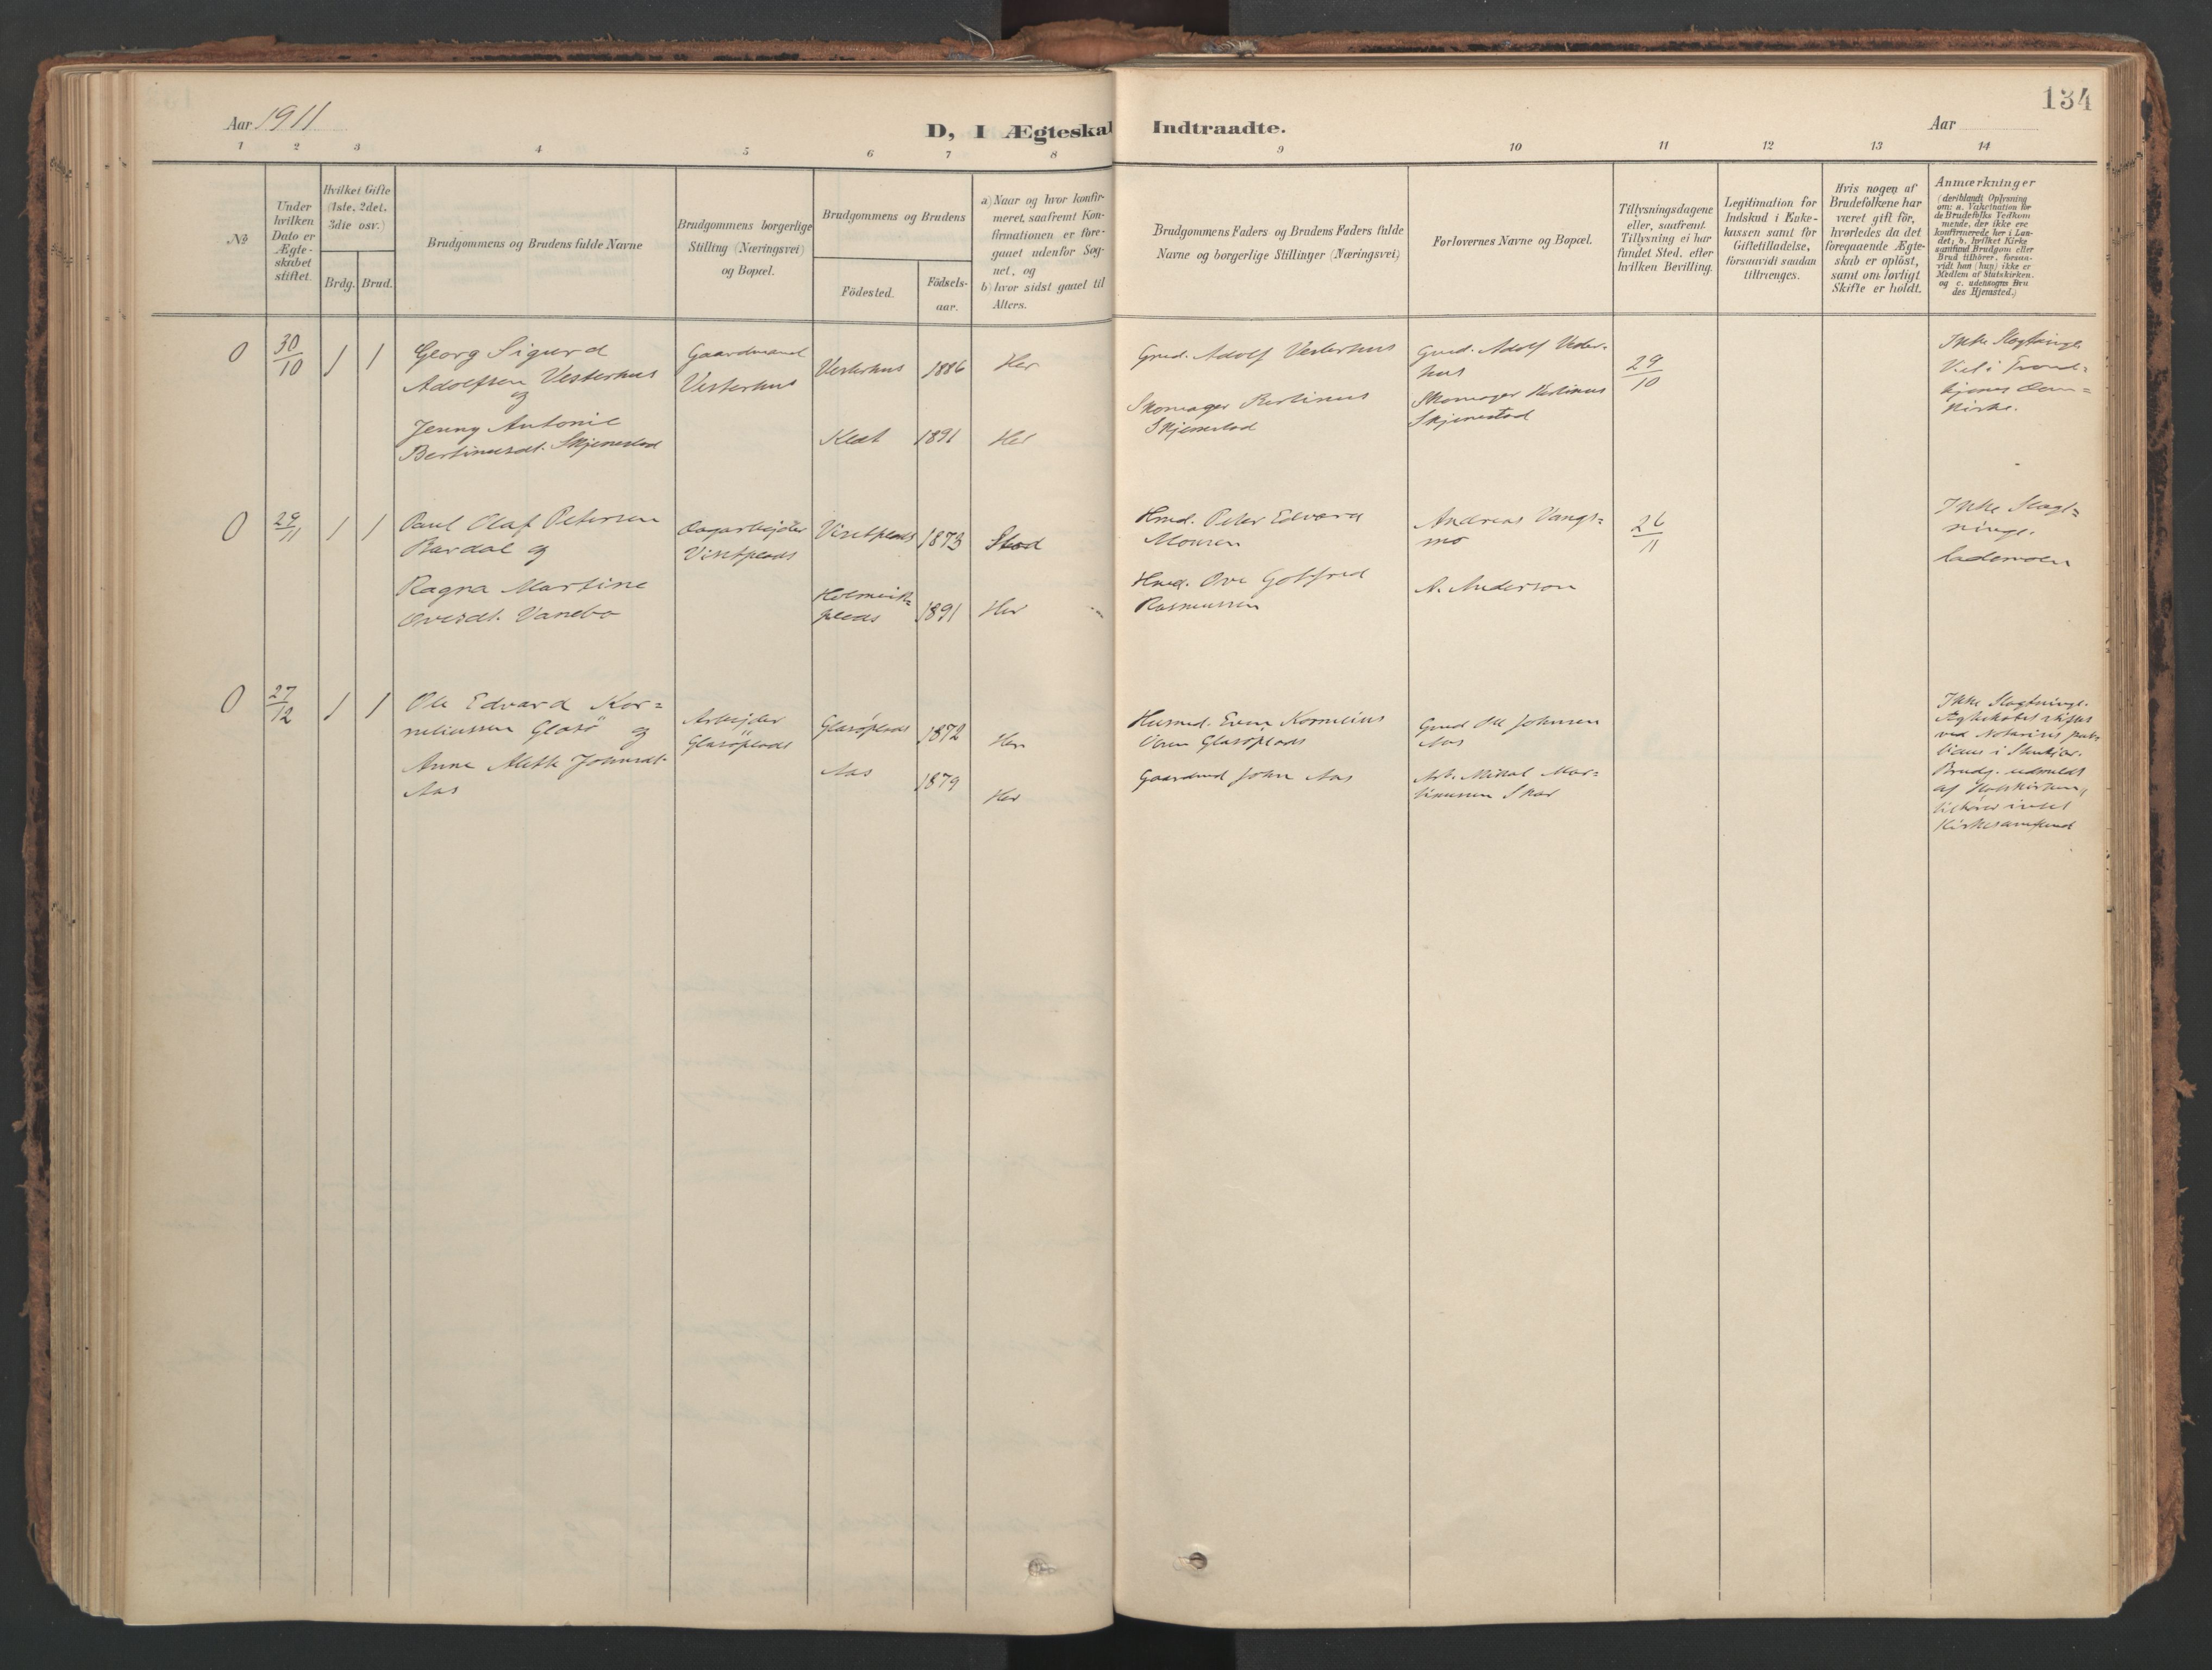 134
Aar 1911
D, I Ægteskab Indtraadte.
Aar
1 2 3 4 5 6 7 8 9 10 11 12 13 14
No
Under
hvilken
Dato er
Ægte-
skabet
stiftet.
Hvilket Gifte
(1ste, 2det,
3die osv.)
Brdg. Brud.
Brudgommens og Brudens fulde Navne
Brudgommens borgerlige
Stilling (Næringsvei)
og Bopæl.
Brudgommens og Brudens
Födested.
Födsels-
aar.
a) Naar og hvor konfir-
meret, saafremt Kon-
firmationen er fore-
gaaet udenfor Sog-
net, og
b) hvor sidst gaaet til
Alters.
Brudgommens Faders og Brudens Faders fulde
Navne og borgerlige Stillinger (Næringsvei)
Forlovernes Navne og Bopæl.
Tillysningsdagene
eller, saafremt
Tillysning ei har
fundet Sted, efter
hvilken Bevilling.
Legitimation for
Indskud i Enke-
kassen samt for
Giftetilladelse,
forsaavidt saadan
tiltrænges.
Hvis nogen af
Brudefolkene har
været gift för,
hvorledes da det
foregaaende Ægte-
skab er oplöst,
samt om lovligt
Skifte er holdt.
Anmærkninger
(deriblandt Oplysning
om: a. Vakcination for
de Brudefolks Vedkom
mende, der ikke ere
konfirmerede her i Lan-
det; b. hvilket Kirke
samfund Brudgom eller
Brud tilhører, forsaa-
vidt han (hun) ikke er
Medlem af Statskirken.
og c. udensogns Bru
des Hjemsted.)
0 30/10 1 1
Georg Sigurd
Adolfsen Vesterhus
og
Jenny Antonie
Bertinusdt. Skjenestad
Gaardmand
Vesterhus
Vesterhus 1886 Her
Klæt 1891 Her
Gmd. Adolf Vesterhus
Skomager Bertinus
Skjenestad
Gmd. Adolf Vester-
hus
Skomager Bertinus
Skjenestad
29/10
Ikke Slagtninge.
Viet i Trond-
hjems Dom=
kirke.
0 29/11 1 1
Paul Olaf Petersen
Bardal og
Ragna Martine
Ovesdt. Vanebo
Dagarbejder
Vistplads
Vistplads 1873 Stod
1891 Her
Hmd. Peter Edvard
Monsen
Hmd. Ove Gotfred
Rasmussen
Andreas Vangs=
mo
A. Anderson
26/11
Ikke Slagt=
ninge.
Lademoen
0 27/12 1 1
Ole Edvard Kor=
neliussen Glasö og
Anne Aleth Johnsdt.
Aas
Arbejder
Glasöplads
Glasöplads 1872 Her
Aas 1879 Her
Husmd. Even Kornelius
Glasöplads
Gaardmd John Aas
Gmd Ole Johnsen
Aas
Arb. Mikal Mar=
tinusen Skar
Ikke Slagtninge.
Ægteskabet stiftet
ved Notarius pub-
licus i Stenkjær.
Brudg. udmeldt
af Statskirken,
tilhører intet
Kirkesamfund